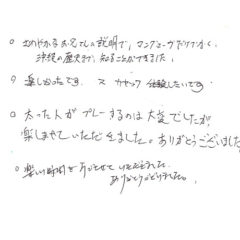 ○ おだやかなお兄さんの説明で、マングローブだけでなく、
沖縄の歴史まで知ることができました。
○ 楽しかったです。 又 カヤック 体験したいです
○ 太った人がプレーするのは大変でしたが
楽しませていただきました。ありがとうございました
○ 楽しい時間を すごさせて いただきました。
ありがとうございました。